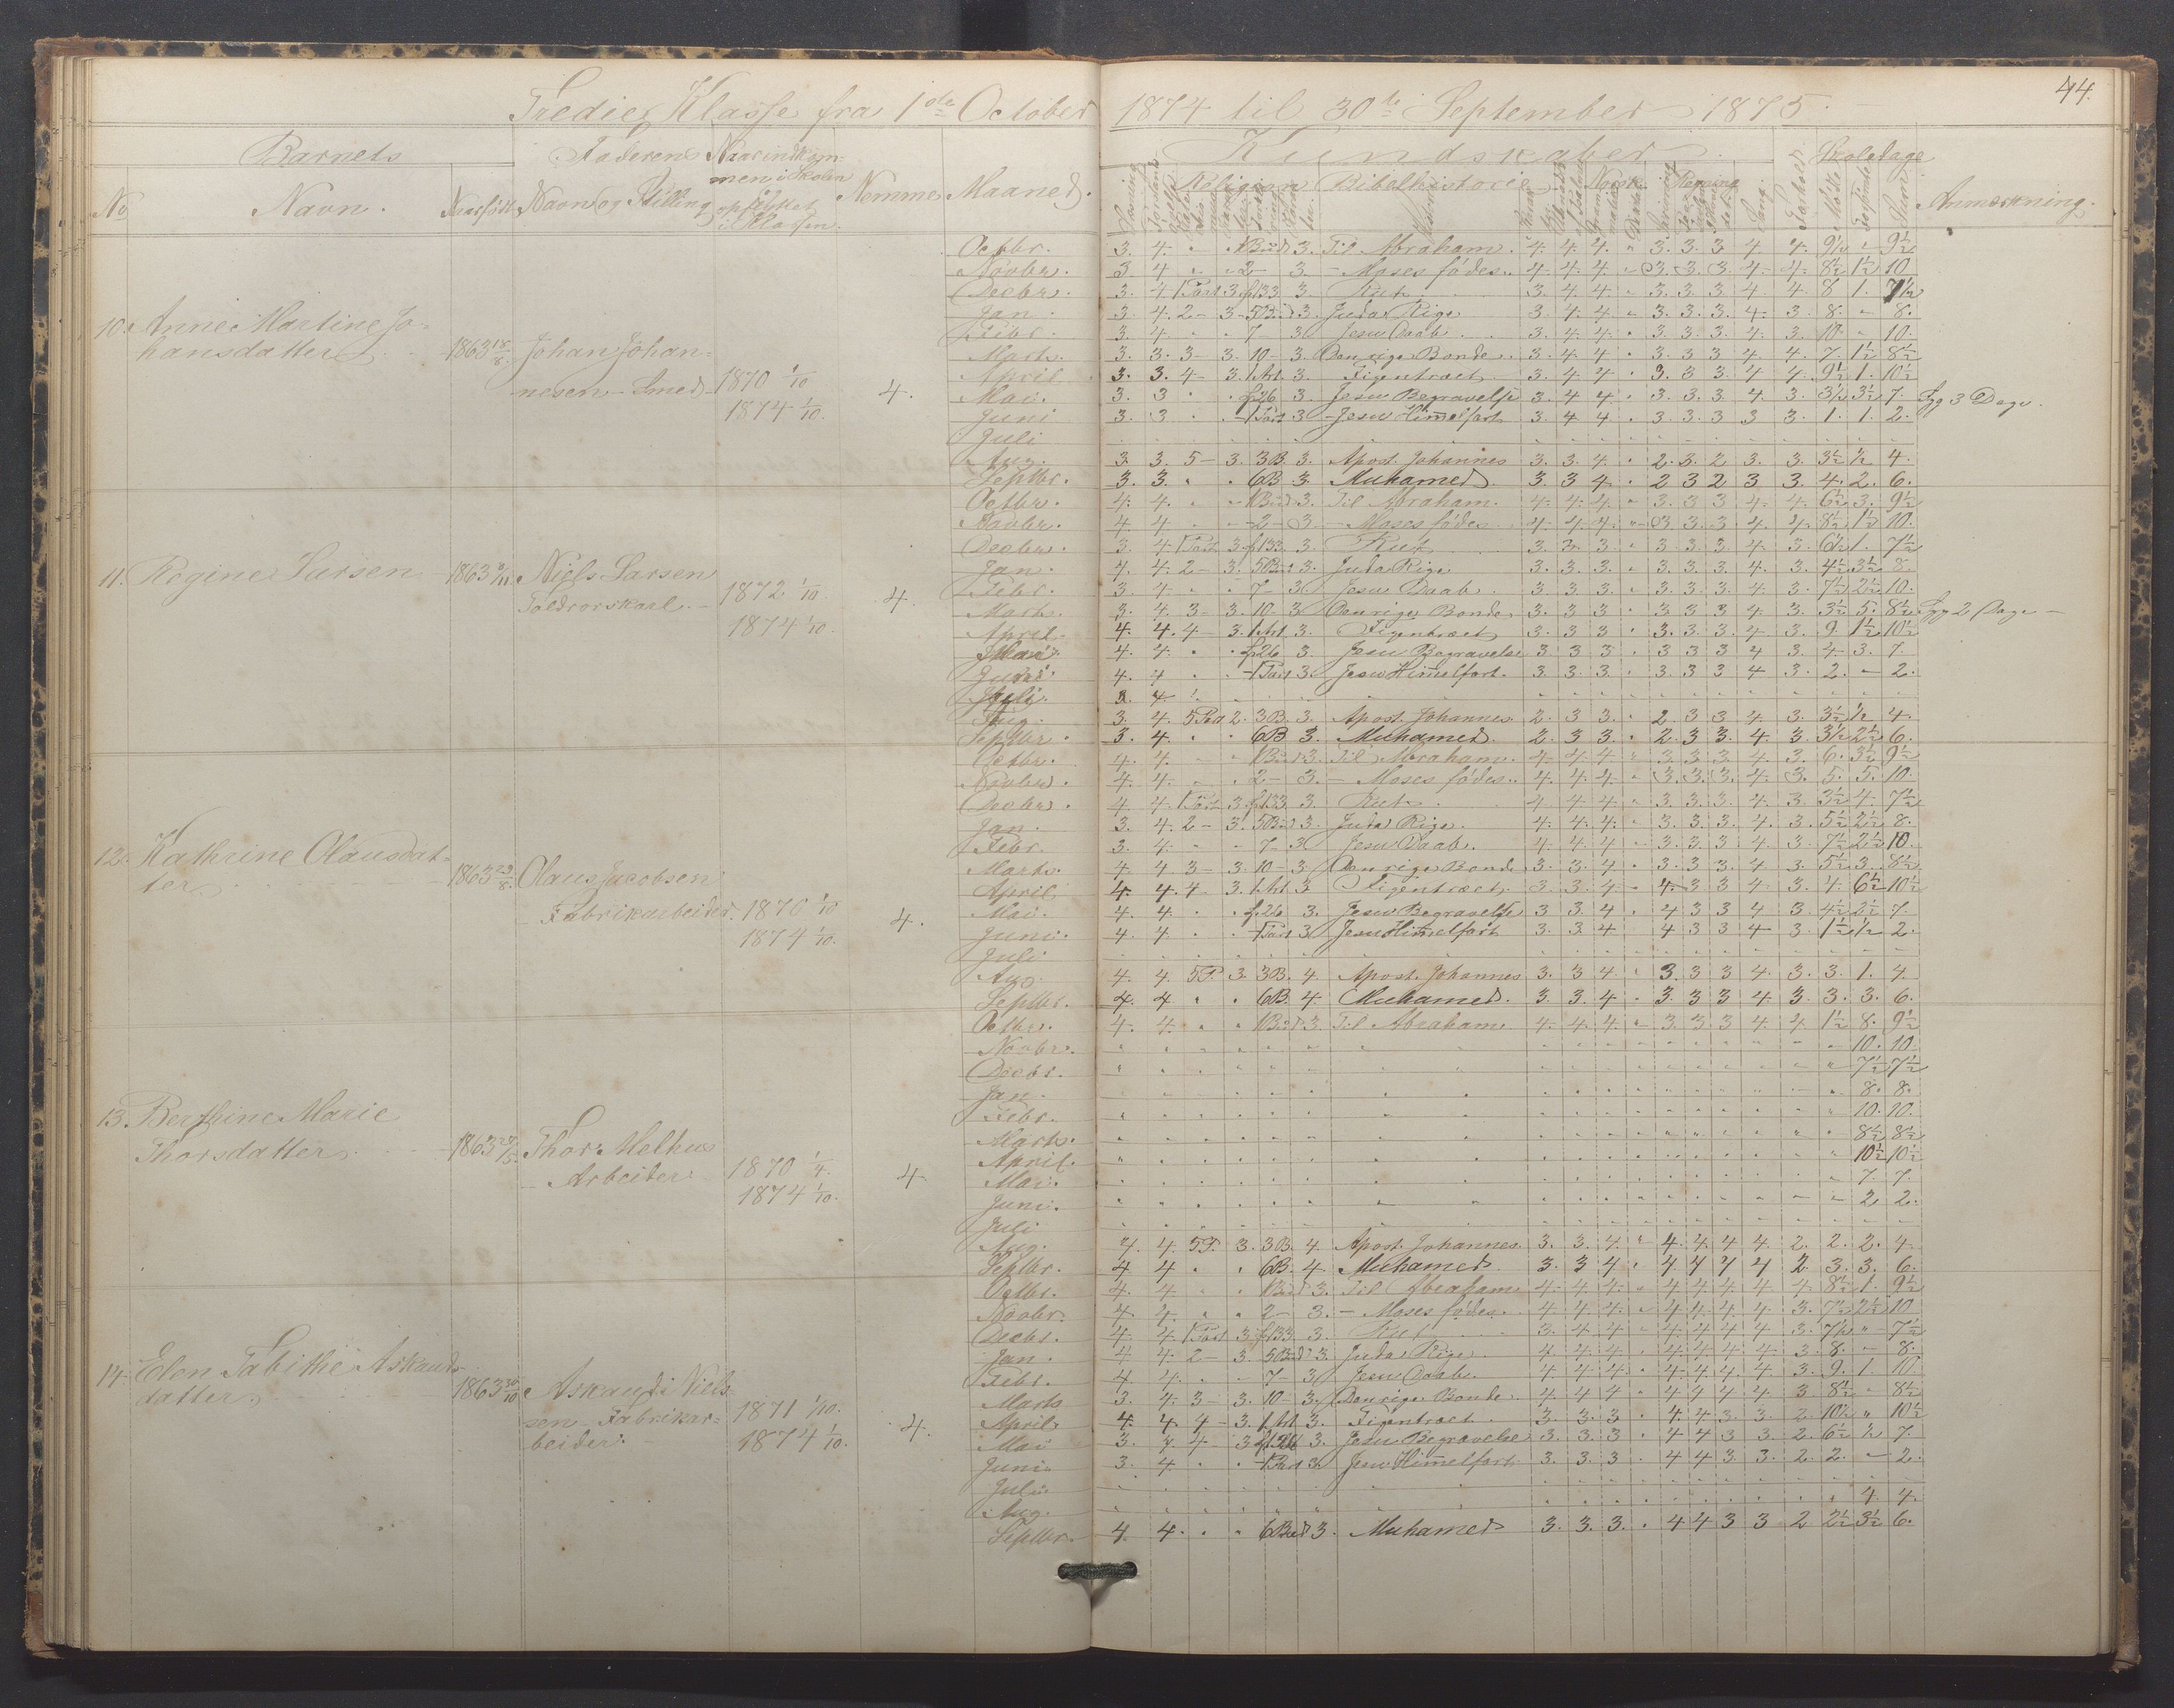 44.
Tredie Klasse fra 1ste October 1874 til 30te September 1875.
Barnets Faderens Naar indkom- Kundskaber Skoledage
men i Skolen
No Navn. Naar født Navn og Stilling opflyttet i Klassen. Nemme Maaned. Religion Bibelhistorie Norsk Regning Sang. Forhold Mødte Forsømte Anmærkning.
10. Anne Martine Jo-
hansdatter 1863 18/8. Johan Johan-
nesen - Smed 1870 1/10
1874 1/10. 4.
Octbr. 3. 4. 1 Bud 3. Til Abraham. 4. 4. 4. 3. 3. 3 4 4. 9½ - 9½
Novbr. 3 4 2 - 3. - Moses fødes. 4. 4. 4. 3. 3. 3. 4. 4. 8½ 1½ 10
Decbr. 3. 4. 1 Part 3. f133 3. Rut 3. 4. 4. 3. 3. 3. 4 4. 8 1. 7½
Jan. 3. 4. 2 - 3. 5 Bud 3. Juda Rige 3. 4. 4. 3. 3. 3. 4. 3. 8. - 8.
Febr. 3. 4. 7 3. Jesu Daab. 3. 4. 4. 3. 3. 3. 4. 3. 10. - 10.
Marts. 3. 3. 3 - 3. 10 - 3. Den rige Bonde. 3. 4. 4. 3. 3 3 4. 4. 7. 1½ 8½
April 3. 3. 4 - 3. 1 Art. 3. Figentræet 3. 4 4. 3. 3 3. 4 4. 9½ 1. 10½
Mai. 3. 3 f26 3. Jesu Begravelse 3. 4 4. 3. 3. 3. 4. 3. 3½ 3½ 7. Syg 3 Dage.
Juni 3. 3 1 Part 3 - Jesu Himelfart 3. 4 4. 3. 3 3 3 3. 1. 1. 2.
Juli
Aug. 3. 3. 5 - 3. 3B. 3. Apost. Johannes 3. 3. 4. 2. 3. 2 3. 3. 3½ ½ 4.
Septbr. 3. 3. 6B 3. Muhamed 3. 3 4. 2 3 2 3 3. 4. 2. 6.
11. Regine Larsen 1863 8/11. Niels Larsen
Toldrorskarl. 1872 1/10
1874 1/10. 4.
Octbr. 4. 4. 1 Bud 3. Til Abraham. 4. 4. 4. 3. 3 3 4. 4. 6½ 3. 9½
Novbr. 4. 4 2 - 3. - Moses fødes 4. 4. 4. 3. 3. 3 4. 4. 8½ 1½ 10.
Decbr. 3. 4. 1 Part 3. f133. 3. Rut 3. 3. 3. 3. 3. 3. 4. 3. 6½ 1. 7½
Jan. 4. 4. 2 - 3. 5 Bud 3. Juda Rige 3. 3. 3. 3. 3. 3. 4. 3. 4½ 3½ 8.
Febr. 3. 4. 7 - 3. Jesu Daab. 3. 3. 3. 3. 3. 3. 4. 3. 7½ 2½ 10.
Marts. 3. 4. 3 - 3. 10 - 3. Den rige Bonde 3. 3 3 3. 3 3 4. 3. 3½ 5. 8½ Syg 2 Dage -
April. 4. 4. 4 - 3. 1 Art. 3. Figentræet 3. 3 3 3. 3. 3. 4. 3. 9. 1½ 10½
Mai. 4. 4. f26 3. Jesu Begravelse 3. 3 3 3. 3 3 4 3. 4. 3. 7.
Juni. 4. 4 1 Part 3. Jesu Himelfart. 3. 3. 3. 3. 3 3 4 3. 2. - 2.
Juli.
Aug. 3. 4. 5 Part 2. 3B. 3. Apost. Johannes 2. 3 3. 2. 3 3 4. 3. 3½ ½ 4.
Septbr. 3. 4. 6B 3. Muhamed. 2. 3 3. 2. 3 3. 4. 3. 3½ 2½ 6.
12. Kathrine Olausdat-
ter 1863 23/8. Olaus Jacobsen
- Fabrikarbeider. 1870 1/10
1874 1/10. 4.
Octbr. 4. 4. 1 Bud 3. Til Abraham. 4. 4. 4. 3. 3. 3. 4. 3. 6. 3½ 9½
Novbr. 4. 4. 2 - 3. - Moses fødes. 4. 4. 4. 3. 3. 3. 4. 3. 5. 5. 10.
Decbr. 4. 4. 1 Part 3. f133. 3. Rut 4. 4. 4. 3. 3. 3. 4. 3. 3½ 4. 7½
Jan. 3. 4. 2 - 3. 5 Bud 3. Juda Rige. 4. 4. 4. 3. 3. 3. 4. 3. 5½ 2½ 8.
Febr. 3. 4. 7 - 3 Jesu Daab. 4. 4. 4. 3. 3 3 4. 3. 7½ 2½ 10.
Marts. 4. 4 3 - 3. 10 - 3. Den rige Bonde 3. 3. 4. 3. 3 3. 4 3. 5½ 3. 8½
April 4. 4. 4 - 3. 1 Art. 3 Figentræet 3. 3. 4. 4. 3 3 4. 3. 4. 6½ 10½
Mai. 4. 4. f26 3. Jesu Begravelse 3 3. 4. 4 3 3 4 3. 4½ 2½ 7.
Juni. 4. 4. 1 Part 3 Jesu Himelfart 3. 3. 4 4 3 3 4 3. 1½ ½ 2.
Juli
Aug. 4. 4. 5P. 3. 3B. 4. Apost. Johannes 3. 3 4. 3. 3 3 4. 3. 3. 1. 4.
Septbr. 4. 4 6B. 4. Muhamed. 3. 3. 4. 3. 3 3 4. 3. 3. 3. 6.
13. Berthine Marie
Thorsdatter 1863 27/5. Thor Melhus
- Arbeider. 1870 1/4.
1874 1/10. 4
Octbr. 4. 4. 1 Bud 3. Til Abraham 4. 4. 4. 3. 3. 3 4. 4. 1½ 8. 9½
Novbr. 10. 10.
Decbr. 7½ 7½
Jan. 8. 8.
Febr. 10. 10.
Marts. 8½ 8½
April. 10½ 10½
Mai. 7. 7.
Juni. 2 2.
Juli
Aug. 4. 4. 5P. 3. 3B. 4. Apost. Johannes. 3. 3. 4. 4. 4. 4 4. 2. 2. 2. 4.
Septbr. 4 4 6B. 4. Muhamed. 3. 3 4 4 4 4 4 2. 3. 3. 6.
14. Elen Tabithe Askauds-
datter 1863 30/10 Askaud Niels-
sen - Fabrikar-
beider. 1871 1/10.
1874 1/10. 4.
Octbr. 4. 4 1 Bud 3. Til Abraham 4. 4. 4. 4. 4. 4 4 4. 8½ 1. 9½
Novbr. 4. 4. 2 - 3. - Moses fødes. 4. 4. 4. 4. 4. 4. 4 3. 7½ 2½ 10
Decbr. 4. 4. 1 Part 3 f133 3. Rut 3. 4 4 4. 4. 4 4 3. 7½ - 7½
Jan. 4 4. 2 - 3. 5 Bud 3. Juda Rige 4. 4. 4. 4. 4. 4 4. 3 8. - 8.
Febr. 4 4. 7 - 3. Jesu Daab. 4. 4. 4. 4. 4. 4. 4 3. 9. 1. 10
Marts 3. 4. 3 - 3. 10 - 3. Den rige Bonde 4. 4 4 4 4 4 4. 3 8½ - 8½
April 4. 4. 4 - 3. 1 Art 3. Figentræet 3. 3. 3 4. 4 3. 3. 2. 10½ 10½
Mai 3. 4. 4 3. 3. Jesu Begravelse 3. 3. 3. 4 4 3 3. 2. 6½ ½ 7.
Juni. 3. 4. 1 Part 3 Jesu Himelfart 3. 3. 3 4 4 3. 3. 2. 2. - 2.
Juli.
Aug. 4. 4.
Septbr. 4. 4. 6 Bud 3. Muhamed 3. 3. 3. 4 4 3 3 2 2½ 3½ 6.